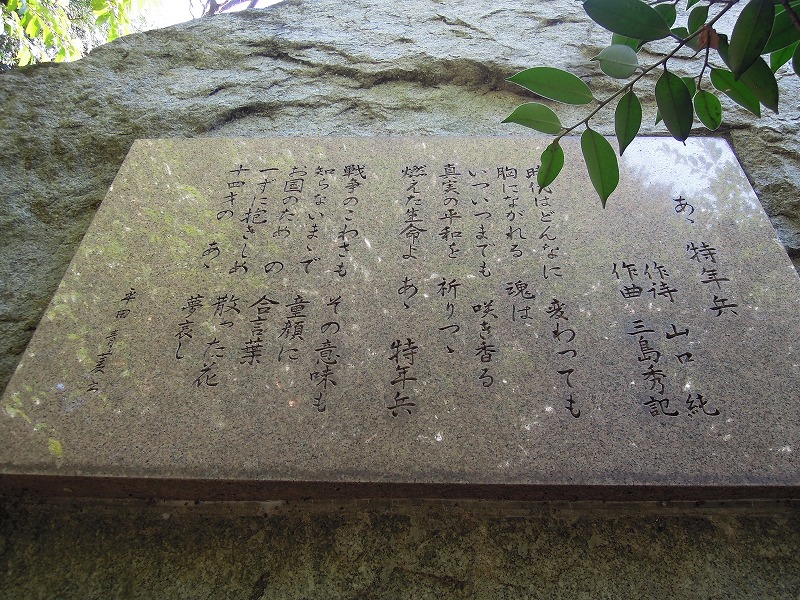 あゝ 特年兵
作詩 山口 純
作曲 三島秀記
時代はどんなに 変わっても
胸にながれる 魂は
いついつまでも 咲き香る
真実の平和を 祈りつゝ
燃えた生命よ あゝ 特年兵
戦争のこわさも その意味も
知らないまゝで 童顔に
お国のため の 合言葉
一ずに抱きしめ 散った花
十四才の あゝ 夢哀し